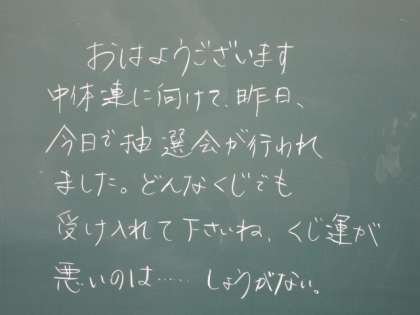 おはようございます
中体連に向けて、昨日、
今日で抽選会が行われ
ました。どんなくじでも
受け入れて下さいね、くじ運が
悪いのは……しょうがない。